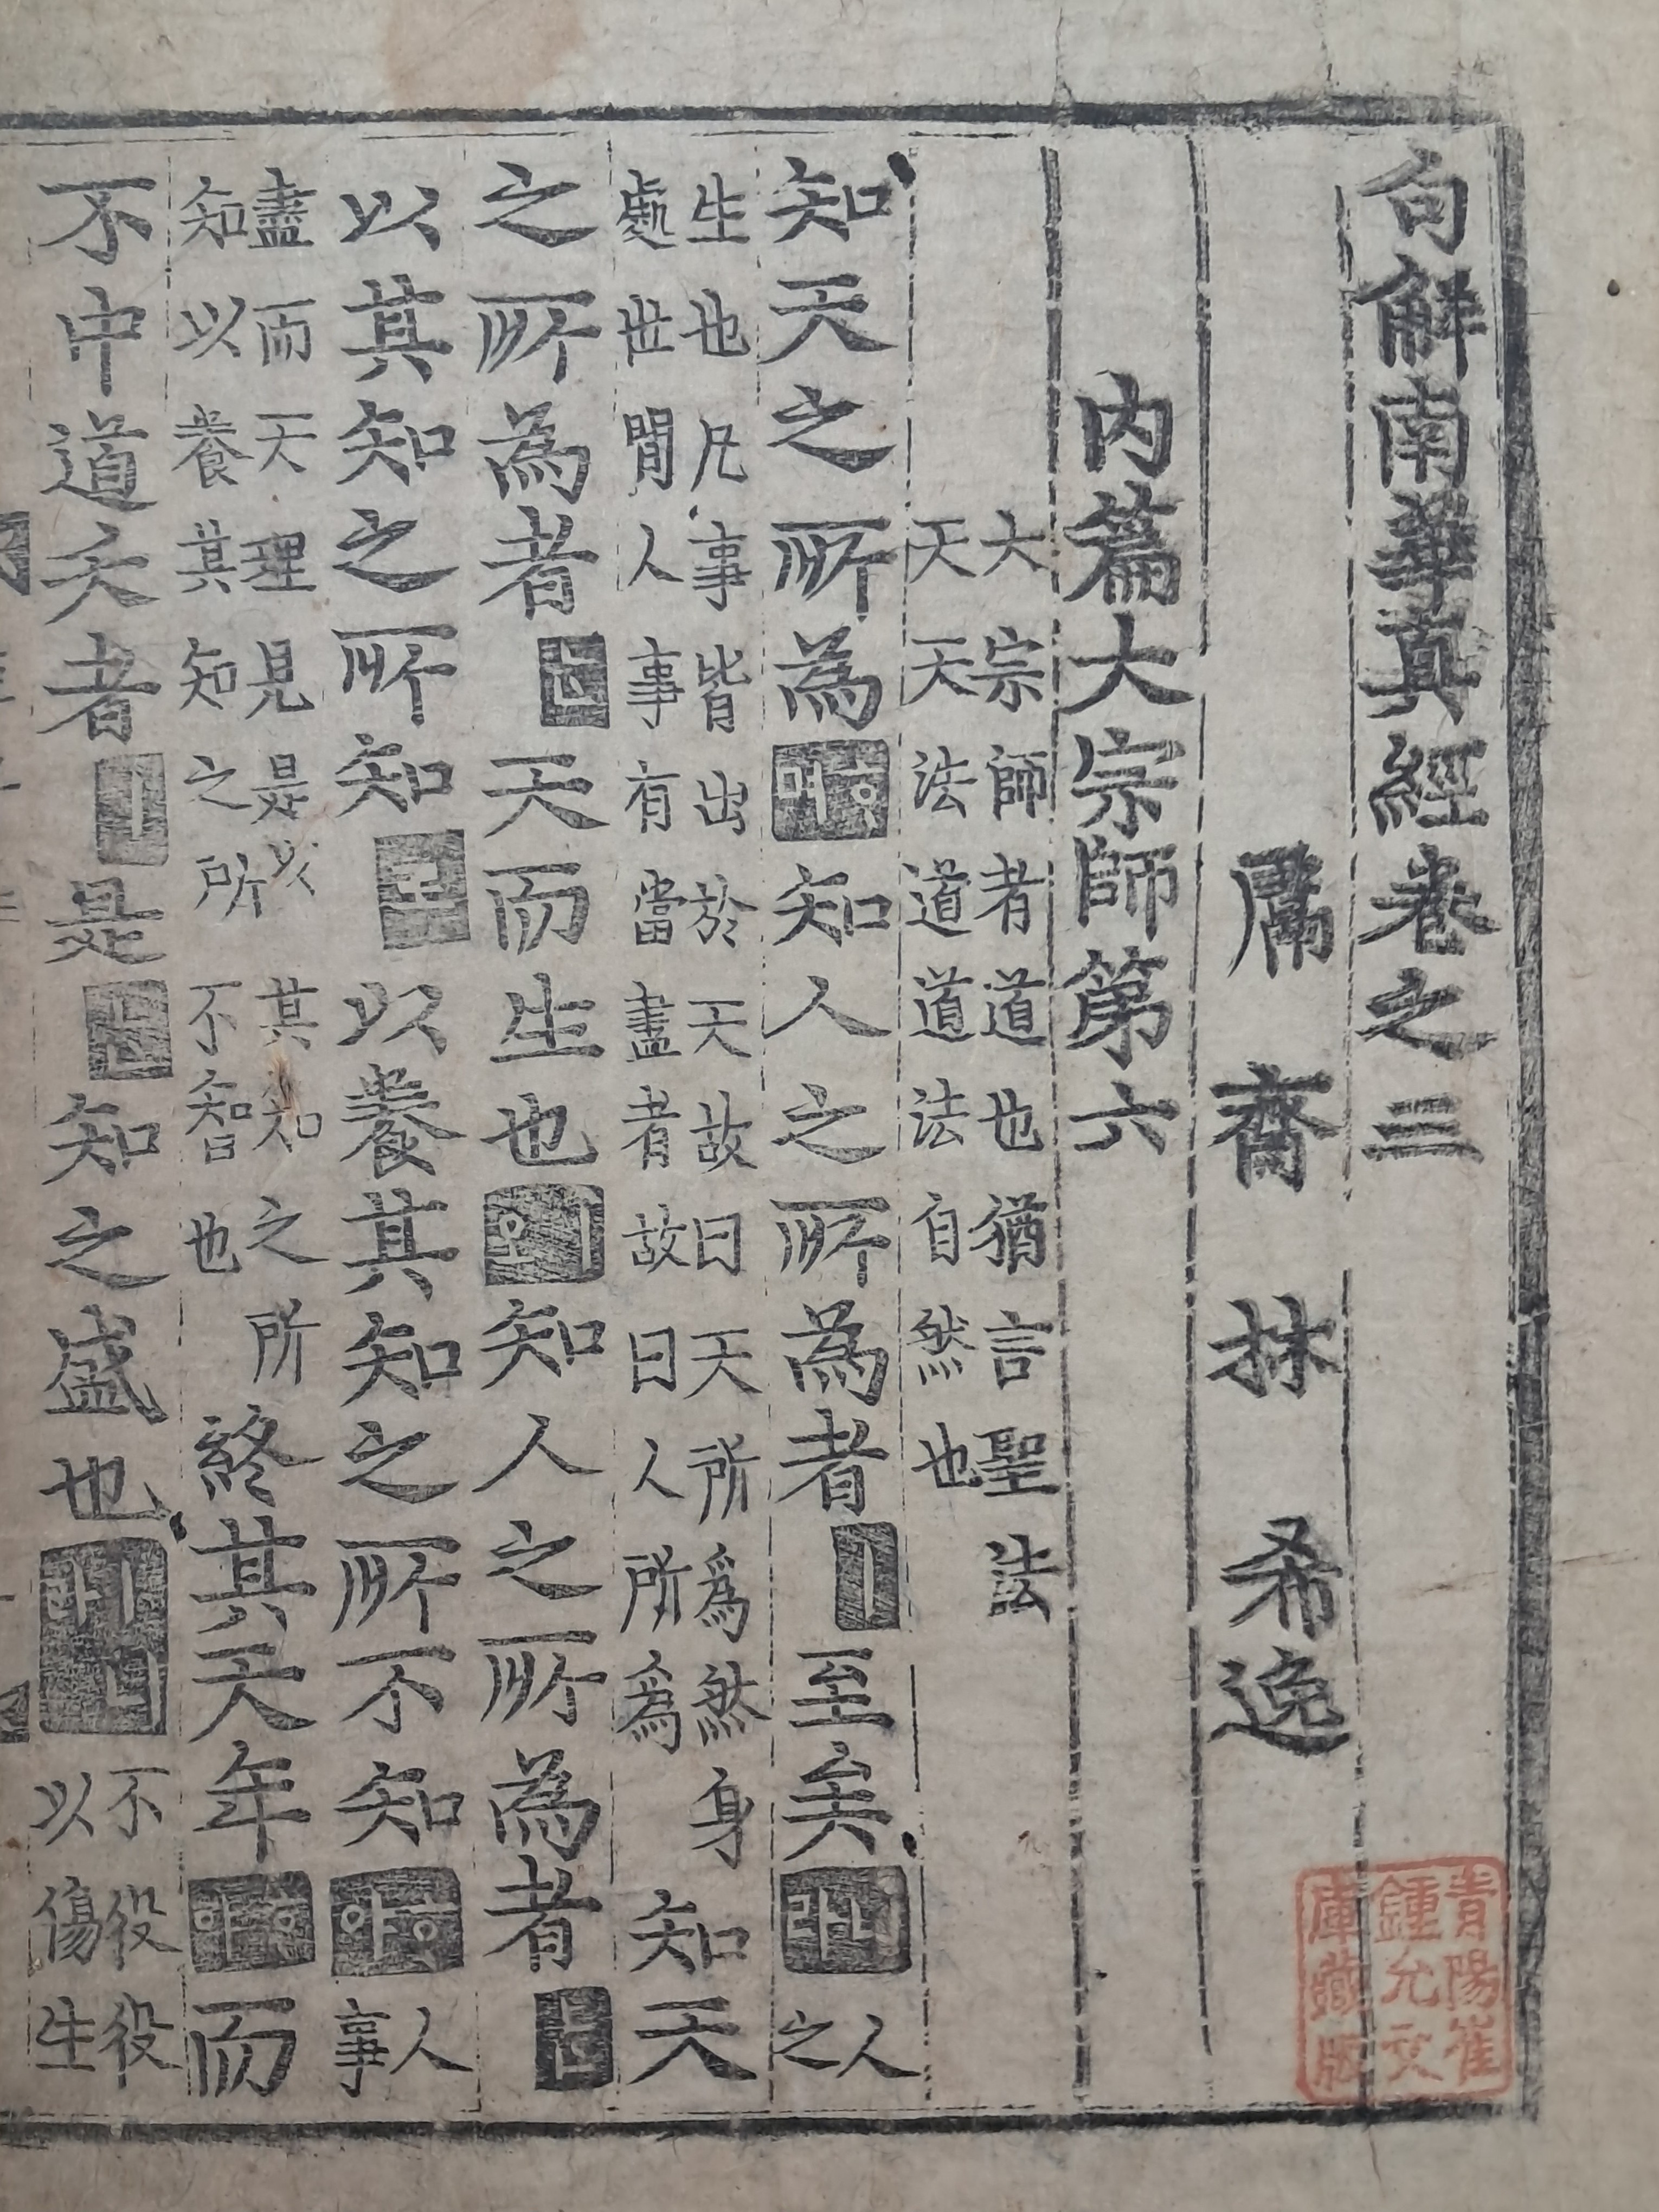 句解南華真經卷之三
鬳齋林希逸
內篇大宗師第六
大宗師者道也猶言聖法
天天法道道法自然也
知天之所為知人之所為者ㅣ至矣
人
之
生也凡事皆出於天故曰天所爲然身
處世間人事有當盡者故曰人所爲
知天
之所為者天而生也知人之所為者
以其知之所知以養其知之所不知
人
事
盡而天理見是以其知之所
知以養其知之所不智也
終其天年而
不中道夭者ㅣ是知之盛也
不役役
以傷生
青陽崔
鍾允文
庫藏版